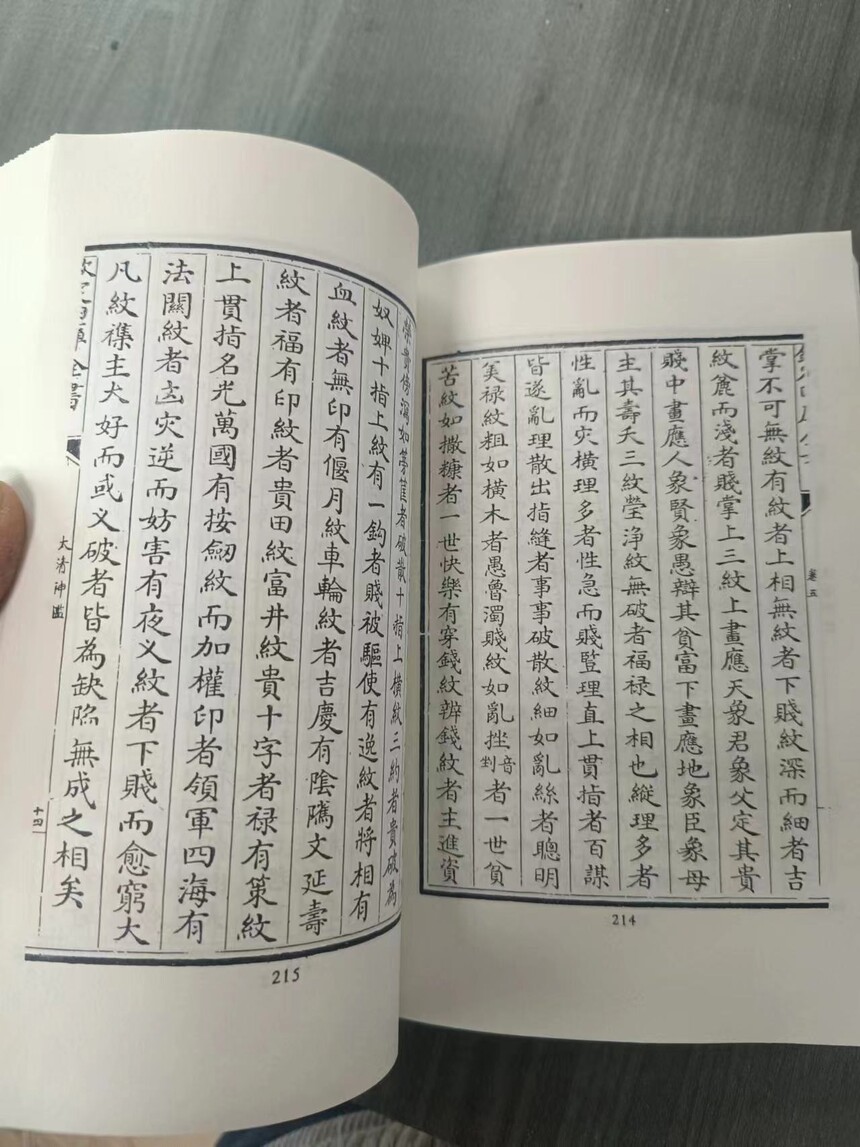 卷五
掌不可無紋有紋者上相無紋者下賤紋深而細者吉
紋麄而淺者賤掌上三紋上畫應天象君象父定其貴
賤中畫應人象賢象愚辯其貧富下畫應地象臣象母
主其壽夭三紋瑩淨紋無破者福禄之相也縱理多者
性亂而灾横理多者性急而賤豎理直上貫指者百謀
皆遂亂理散出指縫者事事破散紋細如亂絲者聰明
美禄紋粗如横木者愚魯濁賤紋如亂挫音剉者一世貧
苦紋如撒糠者一世快樂有穿錢紋辨錢紋者主進資
214
榮貴傍瀉如蒡莒者破散十指上横紋三約者貴破為
奴婢十指上紋有一鈎者賤被驅使有逸紋者將相有
血紋者無印有偃月紋車輪紋者吉慶有陰隲文延壽
紋者福有印紋者貴田紋富井紋貴十字者禄有策紋
上貫指名光萬國有按劒紋而加權印者領軍四海有
法關紋者㐫灾逆而妨害有夜义紋者下賤而愈窮大
凡紋襍主大好而或义破者皆為缺陷無成之相矣
全書
大清神鑑
十四
215